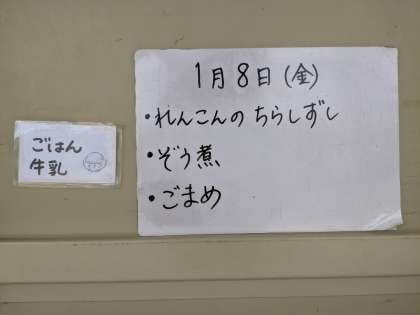 ごはん
牛乳
1月8日(金)
・れんこんのちらしずし
・ぞう煮
・ごまめ